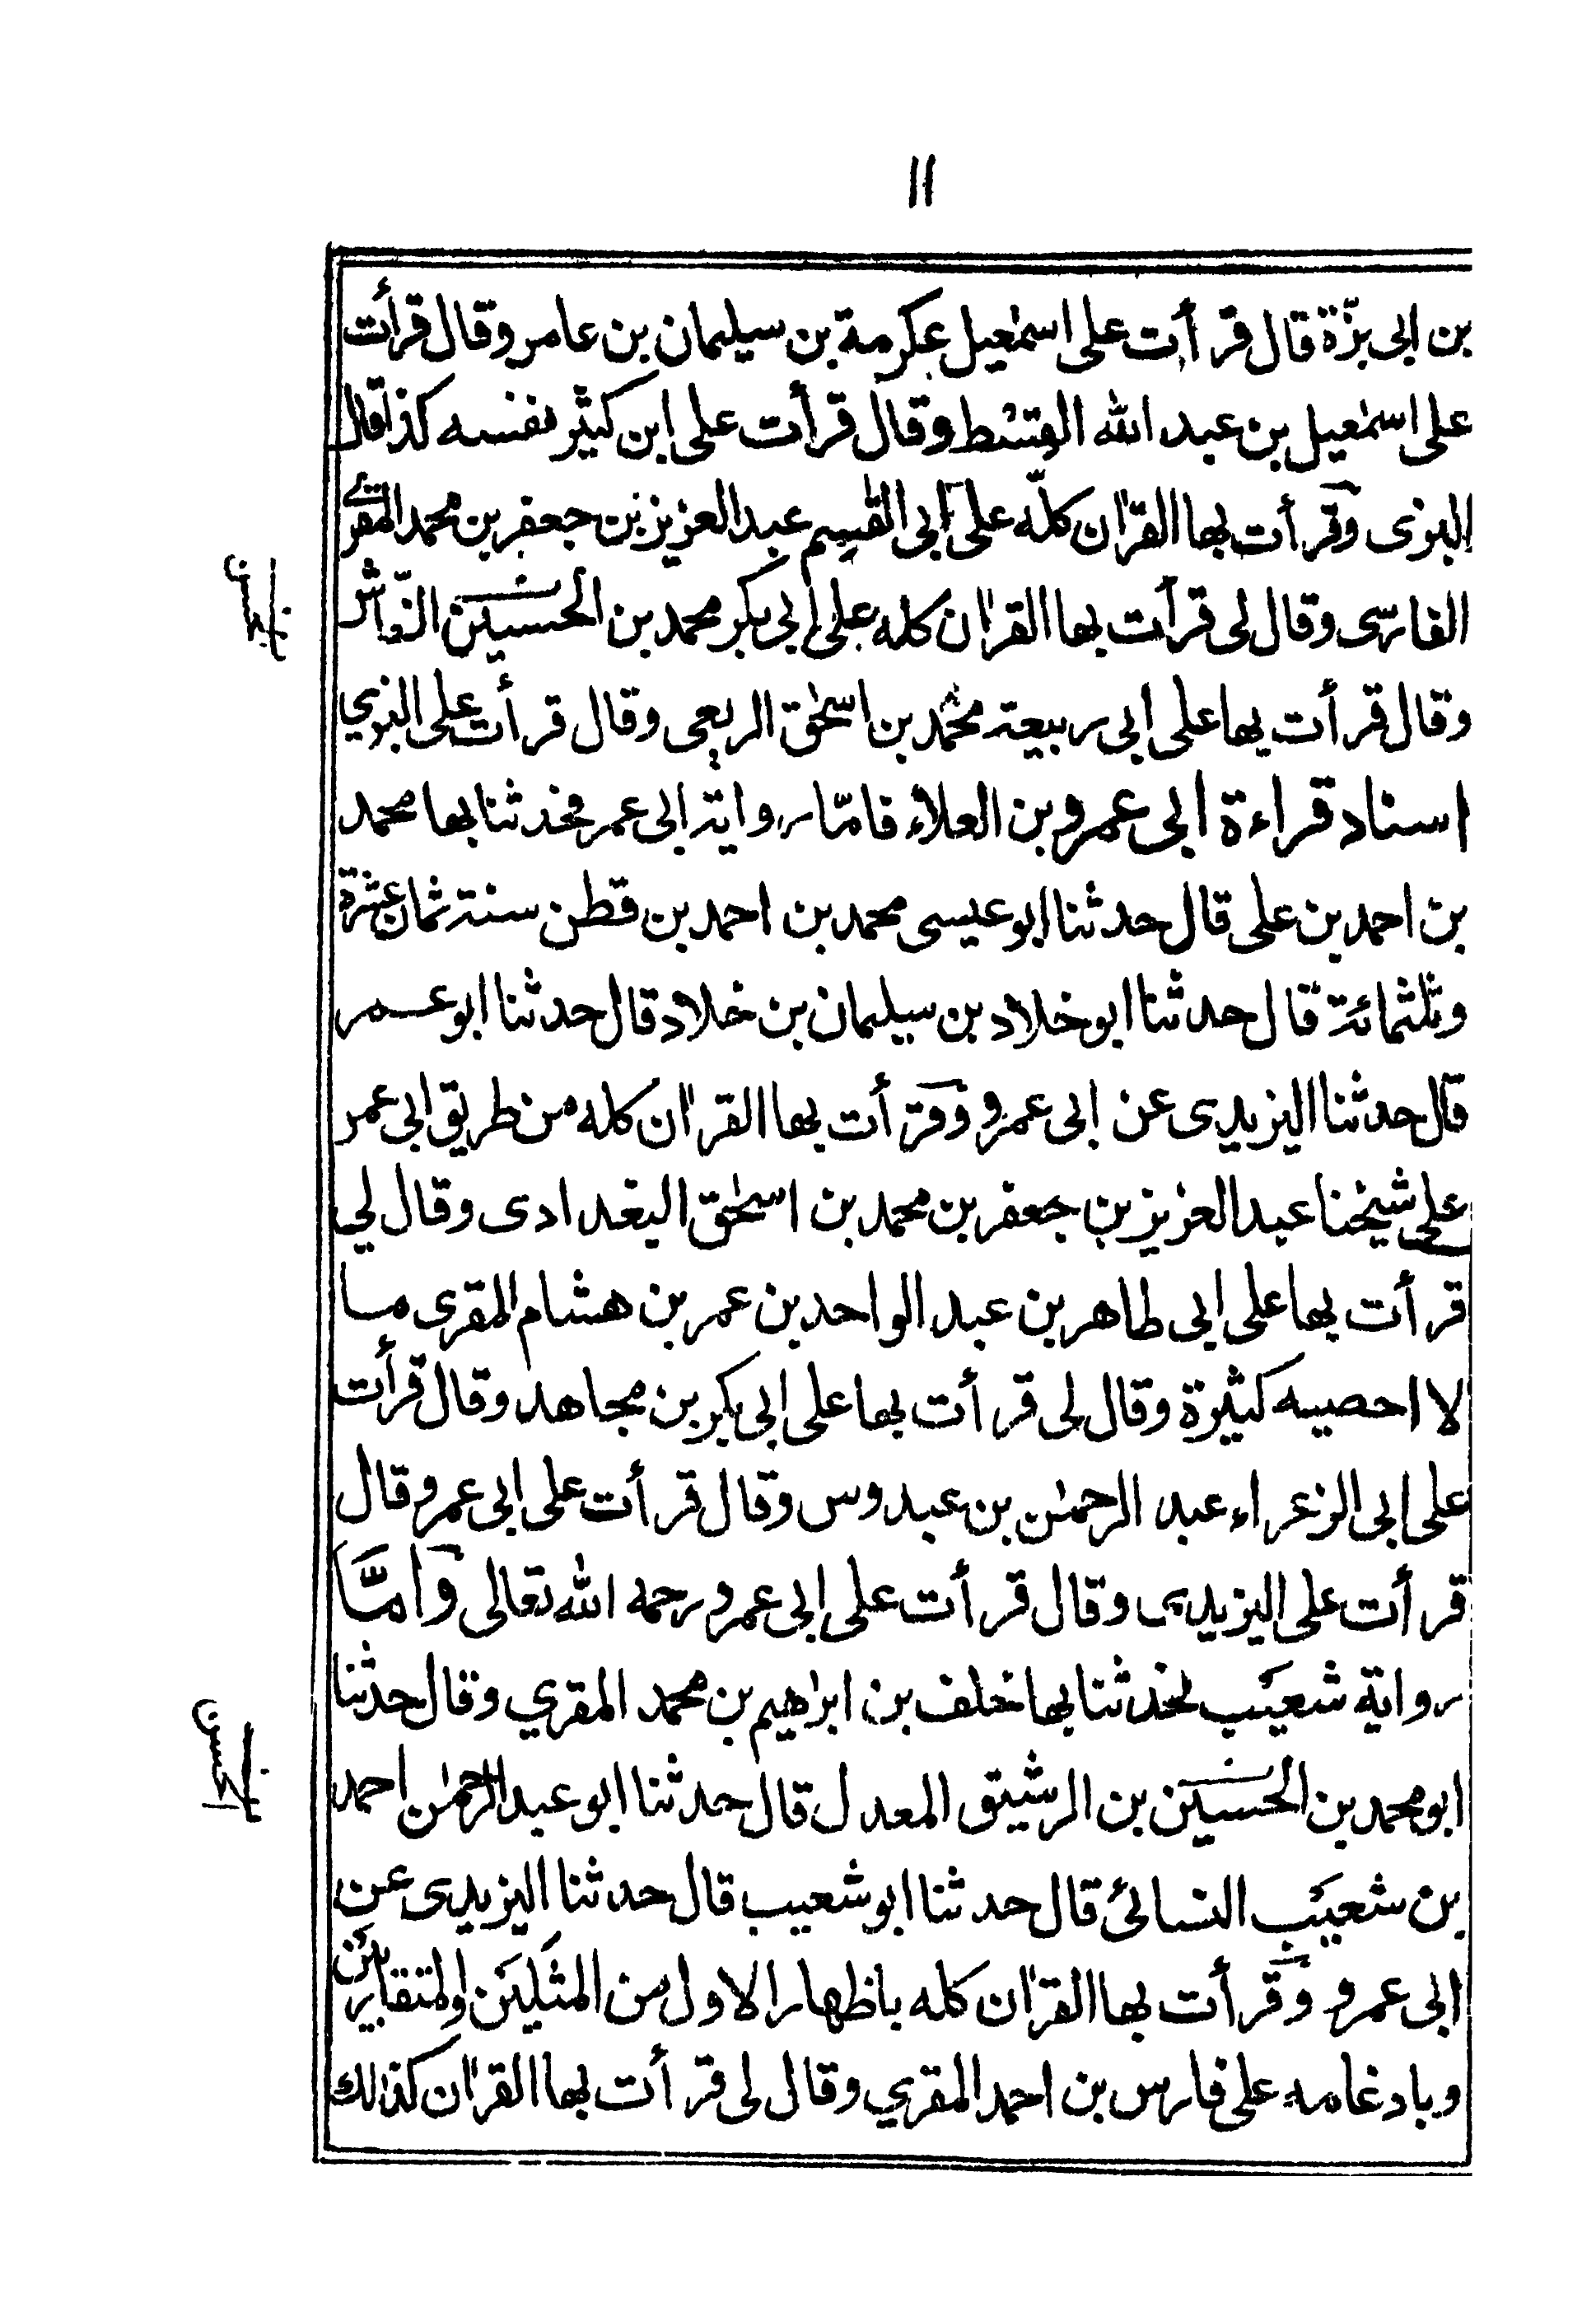 ١١
بن ابى بزّة قال قرأت على اسمٰعيل عكرمة بن سيلمان بن عامر وقال قرأت
على اسمٰعيل بن عبد الله القسط وقال قرأت على ابن كثير نفسه كذا قال
البزى وقرأت بها القرٰان كلّه على ابى القٰسم عبد العزيز بن جعفر بن محمد المقرئ
الفارسى وقال لى قرأت بها القرٰان كله على ابى بكر محمد بن الحسين النقاش
وقال قرأت بها على ابى ربيعة محمد بن اسحٰق الربعى وقال قرأت على البزي
اسناد قراءة ابى عمرو بن العلاء فامّا رواية ابى عمر فحدثنا بها محمد
بن احمد بن على قال حدثنا ابو عيسى محمد بن احمد بن قطن سنة ثمان عشرة
وثلثمائة قال حدثنا ابو خلاد بن سيلمان بن خلاد قال حدثنا ابو عمر
قال حدثنا اليزيدى عن ابى عمرو وقرأت بها القرٰان كله من طريق ابى عمر
على شيخنا عبد العزيز بن جعفر بن محمد بن اسحٰق البغدادى وقال لي
قرأت بها على ابى طاهر بن عبد الواحد بن عمر بن هشام المقرى ما
لا احصيه كثيرة وقال لى قرأت بها على ابى بكر بن مجاهد وقال قرأت
على ابى الزعراء عبد الرحمٰن بن عبدوس وقال قرأت على ابى عمرو قال
قرأت على اليزيدى وقال قرأت على ابى عمرو رحمه الله تعالى وَامَّا
رواية شعيب فحدثنا بها خلف بن ابرٰهيم بن محمد المقري وقال حدثنا
ابو محمد بن الحسين بن الرشيق المعدل قال حدثنا ابو عبد الرحمٰن احمد
بن شعيب النسائى قال حدثنا ابو شعيب قال حدثنا اليزيدى عن
ابى عمرو وقرأت بها القرٰان كله باظهار الاول من المثلين والمتقاربين
وبادغامه على فارس بن احمد المقري وقال لى قرأت بها القرٰان كذلك
الحسن